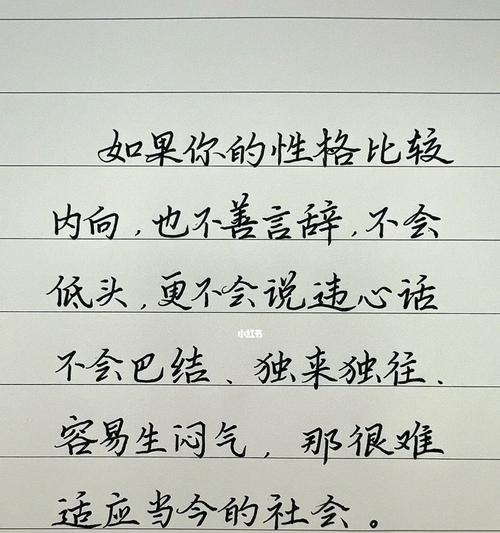 如果你的性格比较
内向,也不善言辞,不会
低头,更不会说违心话
小红书
不会巴结、独来独往、
容易生闷气,那很难
适应当今的社会。